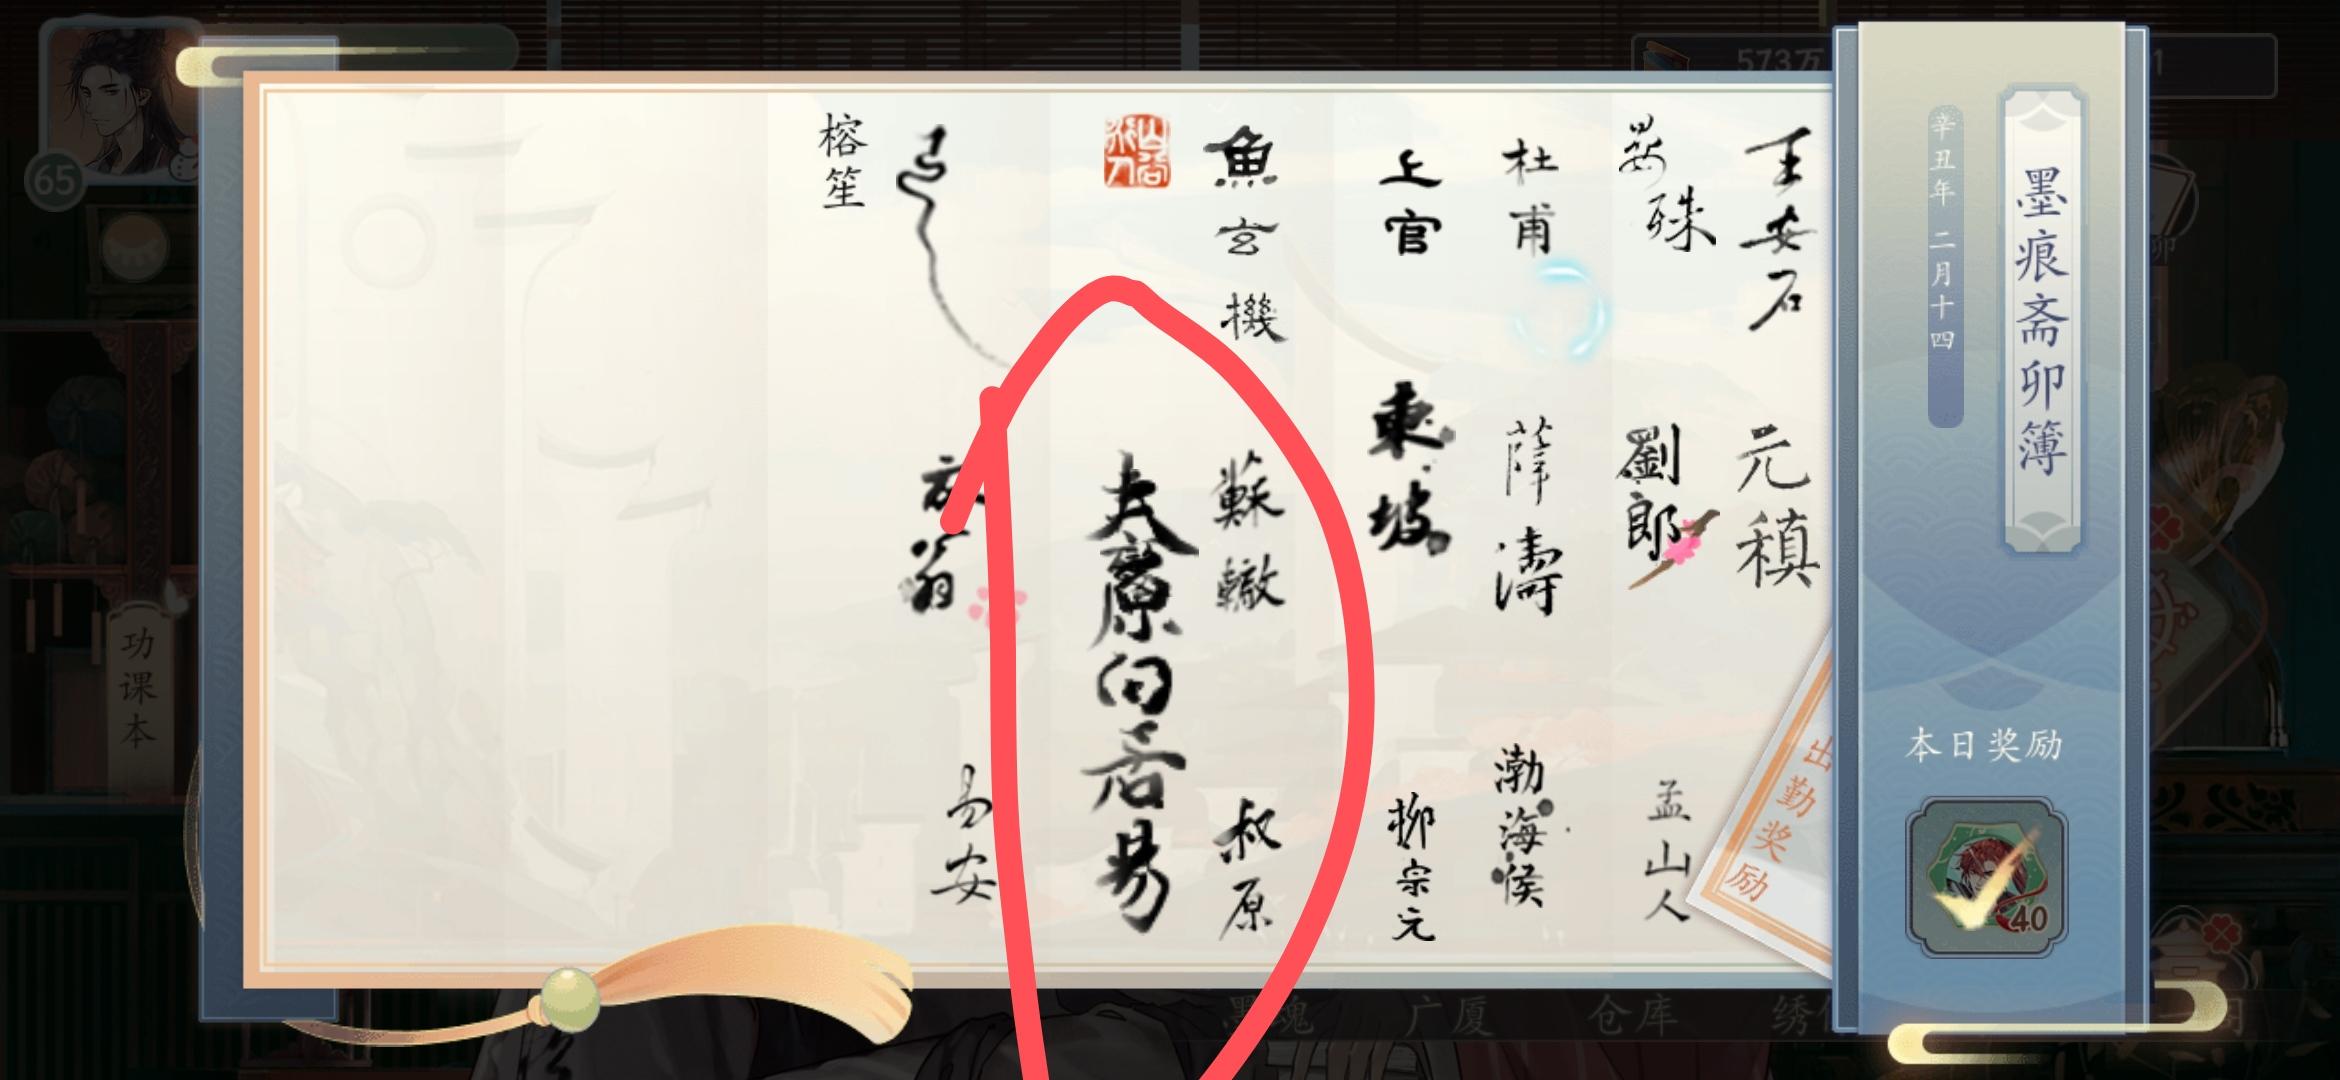 573万
1
65
墨痕斋卯簿
辛丑年 二月十四
本日奖励
40
出勤奖励
王安石
元稹
晏殊
劉郎
孟山人
杜甫
薛濤
渤海侯
上官
東坡
柳宗元
魚玄機
蘇轍
叔原
太原白居易
放翁
易安
榕笙
功课本
墨魂
广厦
仓库